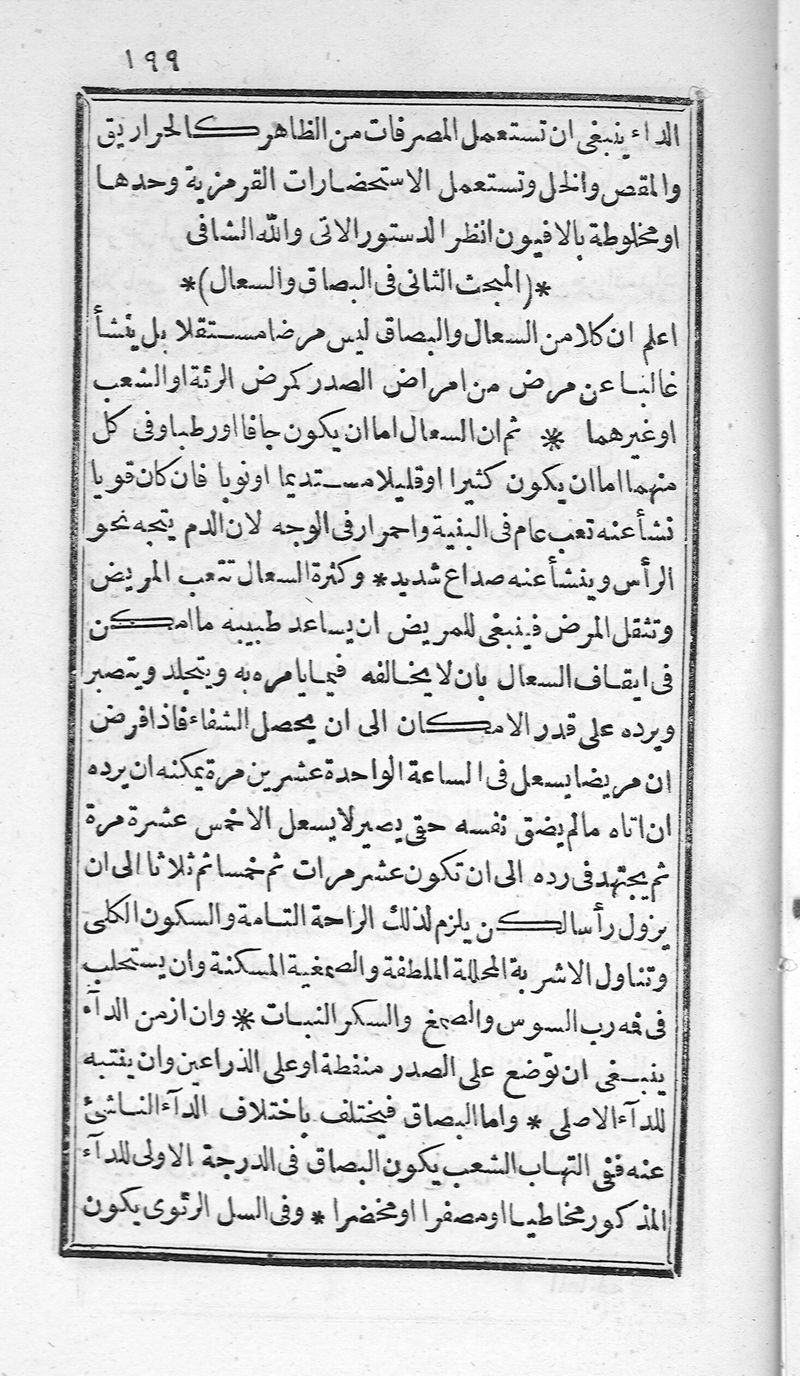 ١٩٩
الداء ينبغى ان تستعمل المصرفات من الظاهر كالحراريق
والمقص والخل وتستعمل الاستحضارات القرمزية وحدها
او مخلوطة بالافيون انظر الدستور الاتى والله الشافى
*(المبحث الثانى فى البصاق والسعال)*
اعلم ان كلا من السعال والبصاق ليس مرضا مستقلا بل ينشأ
غالبا عن مرض من امراض الصدر كمرض الرئة او الشعب
او غيرهما * ثم ان السعال اما ان يكون جافا او رطبا وفى كل
منهما اما ان يكون كثيرا او قليلا مستديما او نوبا فان كان قويا
نشأ عنه تعب عام فى البنية واحمرار فى الوجه لان الدم يتجه نحو
الرأس وينشأ عنه صداع شديد * وكثرة السعال تتعب المريض
وتثقل المرض فينبغى للمريض ان يساعد طبيبه ما امكن
فى ايقاف السعال بان لا يخالفه فيما يامره به ويتجلد ويتصبر
ويرده على قدر الامكان الى ان يحصل الشفاء فاذا فرض
ان مريضا يسعل فى الساعة الواحدة عشرين مرة يمكنه ان يرده
ان اتاه ما لم يضق نفسه حتى يصير لا يسعل الا خمس عشرة مرة
ثم يجتهد فى رده الى ان تكون عشر مرات ثم خمسا ثم ثلاثا الى ان
يزول رأسا لكن يلزم لذلك الراحة التامة والسكون الكلى
وتناول الاشربة المحللة الملطفة والصمغية المسكنة وان يستحلب
فى فه رب السوس والصمغ والسكر النبات * وان ازمن الدآء
ينبغى ان توضع على الصدر منفطة او على الذراعين وان ينتبه
للدآء الاصلى * واما البصاق فيختلف باختلاف الدآء الناشئ
عنه ففى التهاب الشعب يكون البصاق فى الدرجة الاولى للدآء
المذكور مخاطيا او مصفرا او مخضرا * وفى السل الرئوى يكون